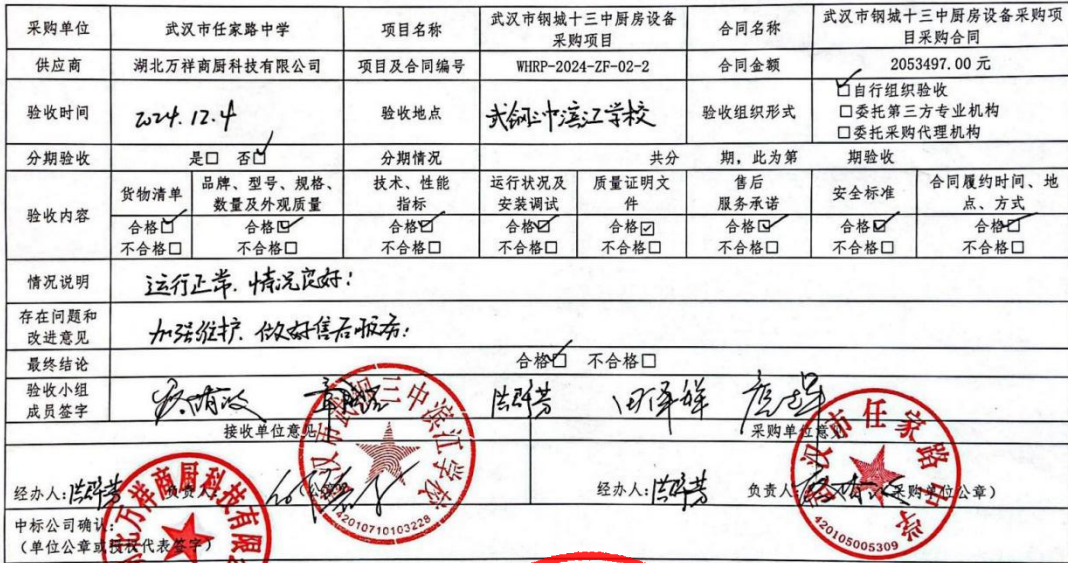 采购单位 武汉市任家路中学 项目名称 武汉市钢城十三中厨房设备采购项目 合同名称 武汉市钢城十三中厨房设备采购项目采购合同
供应商 湖北万祥商厨科技有限公司 项目及合同编号 WHRP-2024-ZF-02-2 合同金额 2053497.00元
验收时间 2024.12.4 验收地点 武钢三中滨江学校 验收组织形式 ☑自行组织验收
□委托第三方专业机构
□委托采购代理机构
分期验收 是□ 否☑ 分期情况 共分 期，此为第 期验收
验收内容 货物清单 品牌、型号、规格、数量及外观质量 技术、性能指标 运行状况及安装调试 质量证明文件 售后服务承诺 安全标准 合同履约时间、地点、方式
合格☑ 合格☑ 合格☑ 合格☑ 合格☑ 合格☑ 合格☑ 合格☑
不合格□ 不合格□ 不合格□ 不合格□ 不合格□ 不合格□ 不合格□ 不合格□
情况说明 运行正常.情况良好!
存在问题和改进意见 加强维护.做好售后服务!
最终结论 合格☑ 不合格□
验收小组成员签字
接收单位意见 采购单位意见
经办人: 负责人: 经办人: 负责人: (采购单位公章)
中标公司确认:
(单位公章或授权代表签字)
武汉市武钢三中滨江学校
42010710103228
武汉市任家路中学
420105005309
北万祥商厨科技有限公